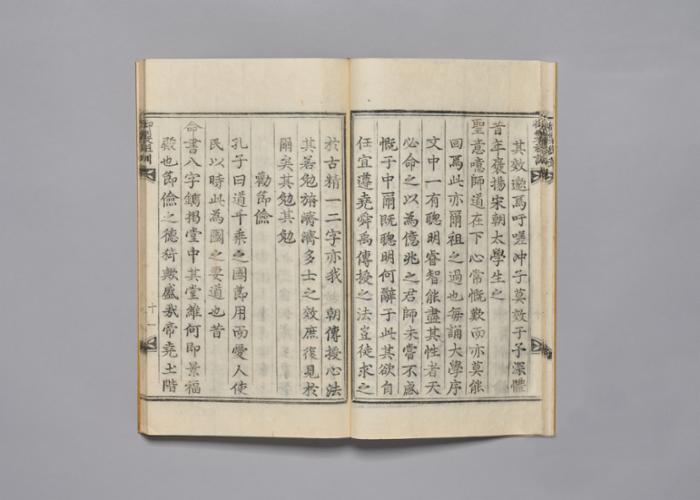 其效邈焉吁嗟冲子莫效于予深體
昔年褒揚宋朝太學生之
聖意噫師道在下心常慨歎而亦莫能
回焉此亦爾祖之過也每誦大學序
文中一有聰明睿智能盡其性者天
必命之以為億兆之君師未嘗不感
慨于中爾既聰明何辭于此其欲自
任宜遵堯舜禹傳授之法豈徒求之
於古精一二字亦我 朝傳授心法
其若勉旃濟濟多士之效庶復見於
爾矣其勉其勉
勸節儉
孔子曰道千乘之國節用而愛人使
民以時此為國之要道也昔
命書八字鐫揭堂中其堂維何即景福
殿也節儉之德猗歟盛哉帝堯土階
十一